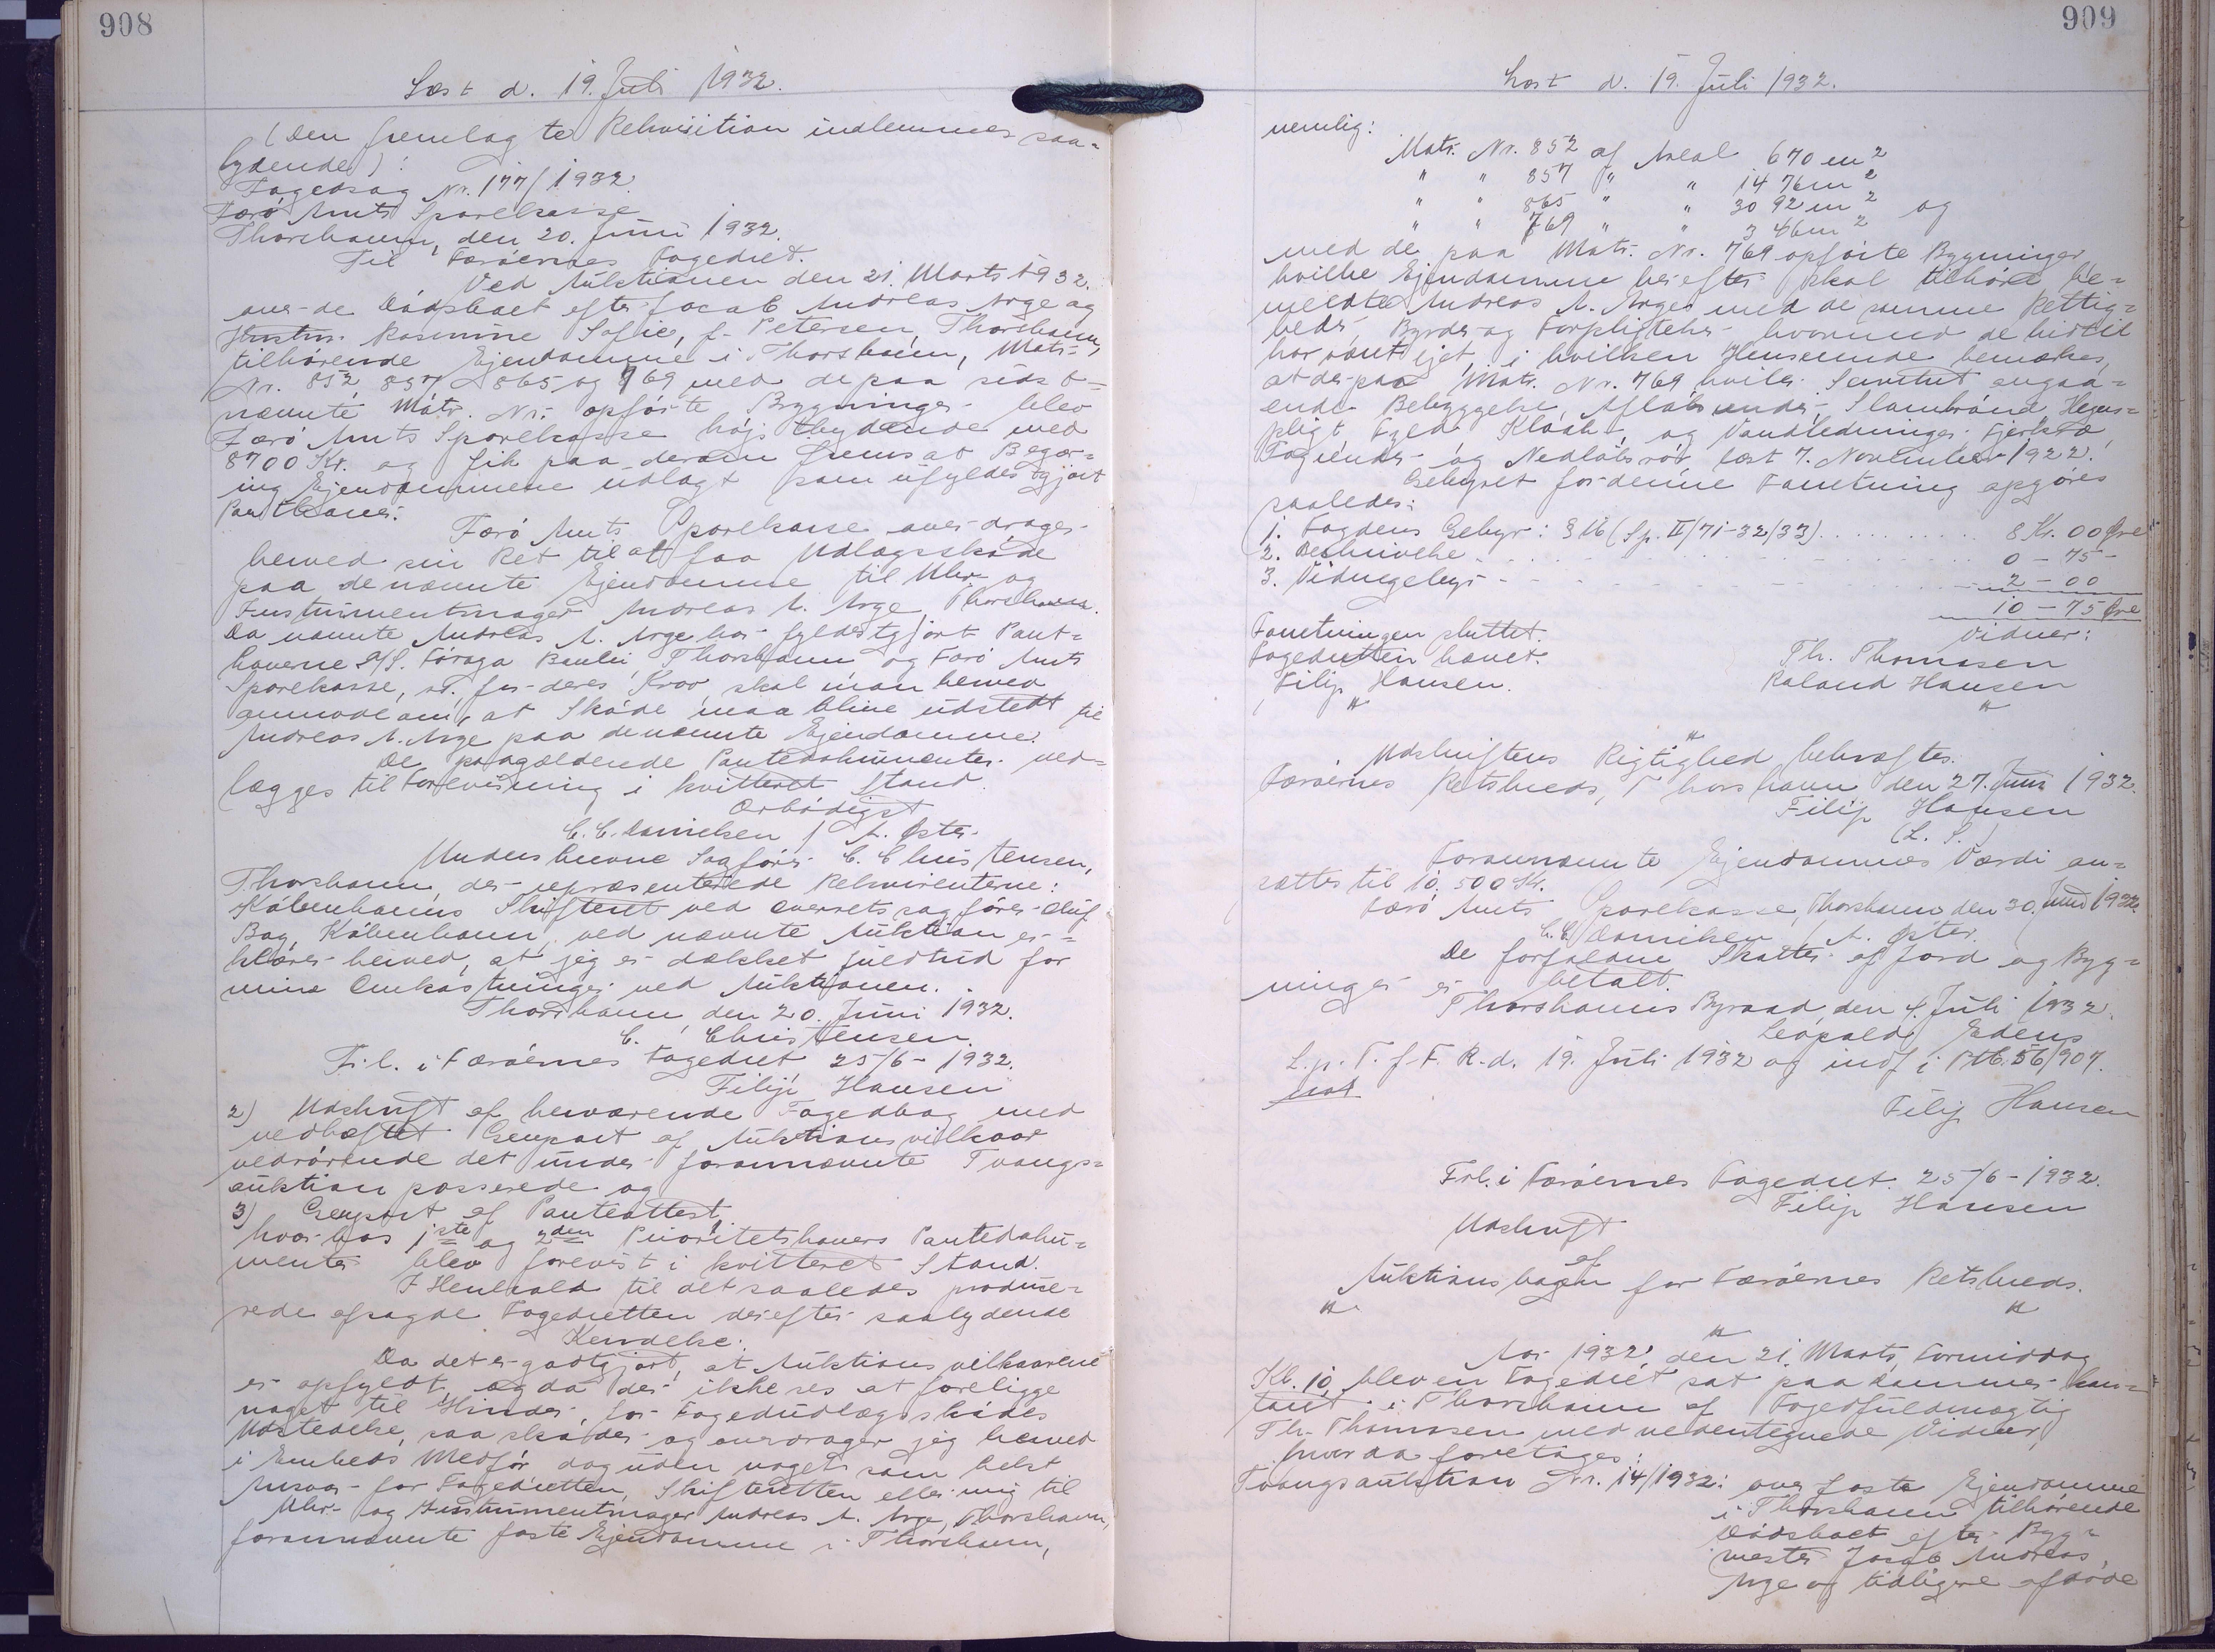 908
Læst d. 19. Juli 1932.
(Den fremlagte Rekvisition indlemmes saa-
lydende):
Fogedsag Nr. 177/1932.
Færø Amts Sparekasse
Thorshavn, den 20. Juni 1932.
Til Færøernes Fogedret.
Ved Auktionen den 21. Marts 1932.
over de Dødsboet efter Jacob Andreas Arge og
Hustru Rasmine Sofie, f. Petersen, Thorshavn,
tilhørende Ejendomme i Thorshavn, Matr.
Nr. 852, 857, 865 og 769 med de paa sidst-
nævnte Matr. Nr. opførte Bygninger blev
Færø Amts Sparekasse højstbydende med
8700 Kr. og fik paa derom fremsat Begær-
ing Ejendommene udlagt som ufyldestgjort
Panthaver.
Færø Amts Sparekasse overdrager
herved sin Ret til at faa Udlægsskøde
paa de nævnte Ejendomme til Uhr- og
Instrumentmager Andreas A. Arge, Thorshavn.
Da nævnte Andreas A. Arge har fyldestgjort Pant-
haverne A/S. Føroya Banki, Thorshavn og Færø Amts
Sparekasse, st. for deres Krav, skal man herved
anmode om, at Skøde maa blive udstedt til
Andreas A. Arge paa de nævnte Ejendomme.
De paagældende Pantedokumenter ved-
lægges til Forevisning i kvitteret Stand.
Ærbødigst
C. C. Danielsen / A. Øster.
Underskrevne Sagfører C. Christensen,
Thorshavn, der repræsenterede Rekvirenterne:
Københavns Skifteret ved Overretssagfører Oluf
Bag, København, ved nævnte Auktion er-
klærer herved, at jeg er dækket fuldtud for
mine Omkostninger ved Auktionen.
Thorshavn, den 20. Juni 1932.
C. Christensen.
Frl. i Færøernes Fogedret 25/6 - 1932.
Filip Hansen
2) Udskrift af herværende Fogedbog med
vedhæftet Genpart af Auktionsvilkaar
vedrørende det under forannævnte Tvangs-
auktion passerede og
3) Genpart af Panteattest,
hvorhos 1ste og 2den Prioritetshavers Pantedoku-
menter blev forevist i kvitteret Stand.
I Henhold til det saaledes produce-
rede afsagde Fogedretten derefter saalydende
Kendelse:
Da det er godtgjort, at Auktionsvilkaarene
er opfyldt, og da der ikke ses at foreligge
noget til Hinder for Fogedudlægsskødes
Udstedelse, saa skøder og overdrager jeg herved
i Embeds Medfør dog uden noget som helst
Ansvar for Fogedretten, Skifteretten eller mig til
Uhr- og Instrumentmager Andreas A. Arge, Thorshavn,
forannævnte faste Ejendomme i Thorshavn,
909
Læst d. 19. Juli 1932.
nemlig:
Matr. Nr. 852 af Areal 670 m2
" " 857 " " 1476 m2
" " 865 " " 3092 m2 og
" " 769 " " 346 m2
med de paa Matr. Nr. 769 opførte Bygninger
hvilke Ejendomme herefter skal tilhøre be-
meldte Andreas A. Arge med de samme Rettig-
heder, Byrder og Forpligtelser hvormed de hidtil
har været ejet, i hvilken Henseende bemærkes,
at der paa Matr. Nr. 769 hviler Servitut angaa-
ende Bebyggelse, Afløbsrender, Slambrønd, Hegns-
pligt, Fyld, Kloak- og Vandledninger, Fjerkræ,
Tagrender og Nedløbsrør læst 7. November 1922.
Gebyret for denne Forretning opgøres
saaledes:
1. Fogdens Gebyr: § 16 (Sp. II/71-32/33) . . . . . 8 Kr. 00 Øre
2. Beskrivelse . . . . . 0 - 75 -
3. Vidnegebyr . . . . . 2 - 00
10 - 75 Øre
Forretningen sluttet. Vidner:
Fogedretten hævet. Th. Thomsen
Filip Hansen. Roland Hansen
Udskriftens Rigtighed bekræftes.
Færøernes Retskreds, Thorshavn den 27. Juni 1932.
Filip Hansen
(L. S.)
Forannævnte Ejendommes Værdi an-
sættes til 10.500 Kr.
Færø Amts Sparekasse, Thorshavn den 30. Juni 1932.
C. C. Danielsen / A. Øster.
De forfaldne Skatter af Jord og Byg-
ninger er betalt.
Thorshavns Byraad, den 4. Juli 1932.
Leopold Edens
L. p. T. f. F. R. d. 19. Juli 1932 og indf. i Ptb. 56/907.
Filip Hansen
Frl. i Færøernes Fogedret 25/6 - 1932.
Filip Hansen
Udskrift
af
Auktionsbogen for Færøernes Retskreds.
Aar 1932, den 21. Marts, Formiddag
Kl. 10, blev en Fogedret sat paa Dommerkon-
toret i Thorshavn af Fogedfuldmægtig
Th. Thomsen med vedentegnede Vidner,
hvor da foretages:
Tvangsauktion Nr. 14/1932: over faste Ejendomme
i Thorshavn tilhørende
Dødsboet efter Byg-
mester Jacob Andreas
Arge og tidligere afdøde